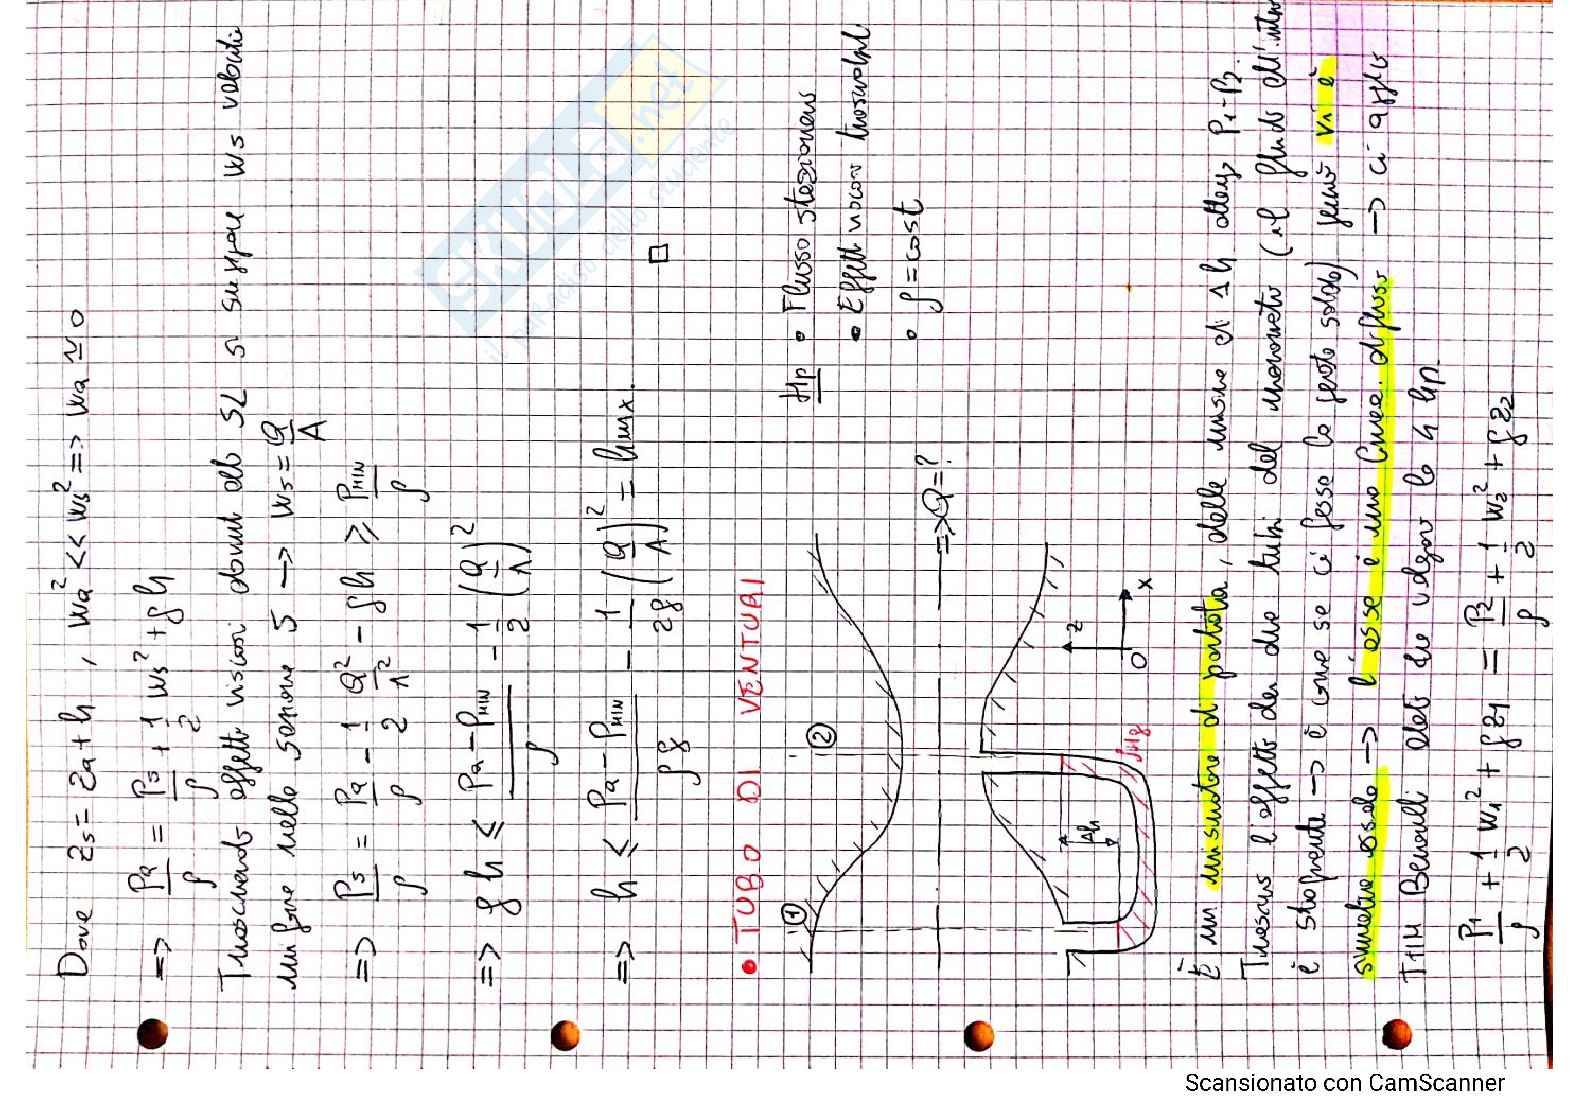 Dove z5 = za + h , wa² << w5² => wa ≃ 0
=> Pa/ρ = P5/ρ + 1/2 w5² + gh
Trascurando effetti viscosi dovuti alla SL si suppone w5 velocità
uniforme nella sezione 5 → w5 = Q/A
=> P5/ρ = Pa/ρ - 1/2 Q²/A² - gh ≥ PMIN/ρ
=> gh ≤ (Pa - PMIN)/ρ - 1/2 (Q/A)²
=> h ≤ (Pa - PMIN)/ρg - 1/2g (Q/A)² = hmax.
• TUBO DI VENTURI
Hp • Flusso stazionario
• Effetti viscosi trascurabili
• ρ = cost
① ②
=> Q = ?
Δh
z
O x
Hg
È un misuratore di portata, dalla misura di Δh ottengo P1-P2.
Trascuro l'effetto dei due tubi del manometro (il fluido all'interno
è stagnante → è come se ci fosse la parete solida) perciò vi è
simmetria assiale → l'asse è una linea di flusso → ci applico
TMM Bernoulli dato che valgono le 4 hp.
P1/ρ + 1/2 w1² + gz1 = P2/ρ + 1/2 w2² + gz2
SKUOLA.net
il paradiso dello studente
Scansionato con CamScanner